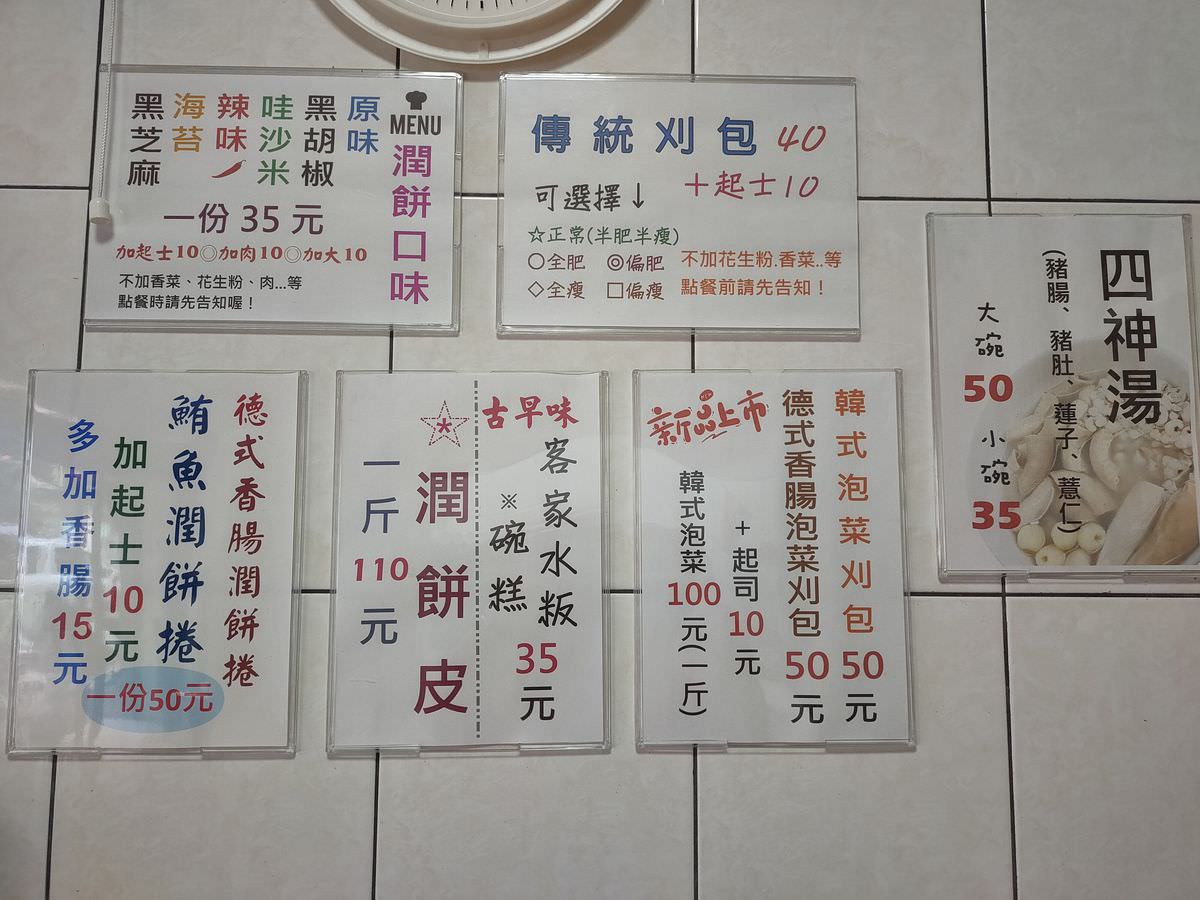 MENU
潤餅口味
原味
黑胡椒
哇沙米
辣味
海苔
黑芝麻
一份 35 元
加起士10◎加肉10◎加大10
不加香菜、花生粉、肉...等
點餐時請先告知喔！
傳統刈包 40
＋起士10
可選擇↓
☆正常(半肥半瘦)
○全肥 ◎偏肥
◇全瘦 □偏瘦
不加花生粉.香菜..等
點餐前請先告知！
四神湯
(豬腸、豬肚、蓮子、薏仁)
大碗 50
小碗 35
德式香腸潤餅捲
鮪魚潤餅捲
一份50元
加起士10元
多加香腸15元
古早味
客家水粄
※碗糕
35元
☆潤餅皮
一斤110元
新品上市
NEW
韓式泡菜刈包50元
德式香腸泡菜刈包50元
+起司10元
韓式泡菜100元(一斤)